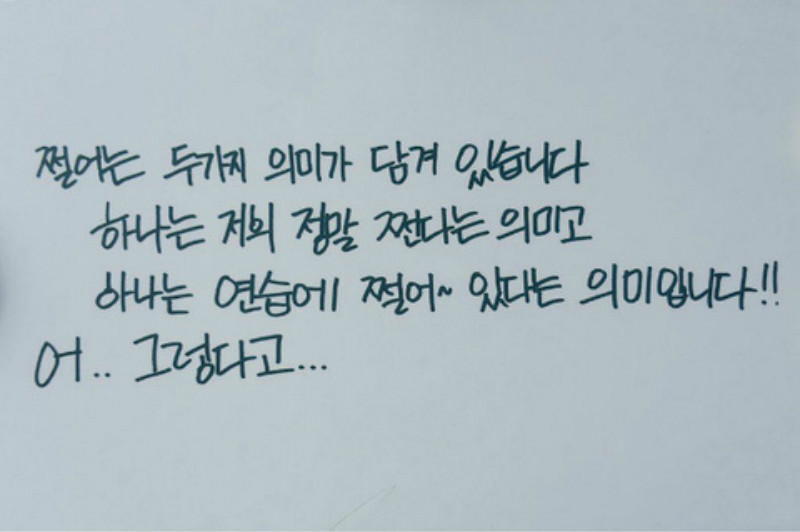 쩔어는 두가지 의미가 담겨 있습니다
하나는 저희 정말 쩐다는 의미고
하나는 연습에 쩔어~ 있다는 의미입니다!!
어.. 그렇다고...